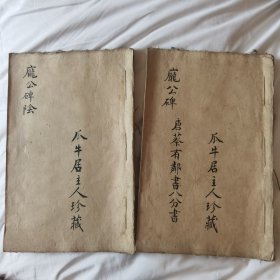 龐公碑
唐蔡有鄰書八分書
瓜牛居主人珍藏
龐公碑陰
瓜牛居主人珍藏